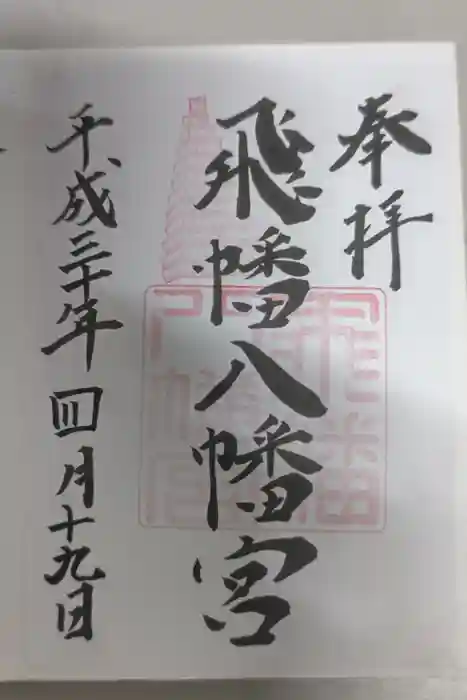 奉拝
飛幡八幡宮
平成三十年四月十九日